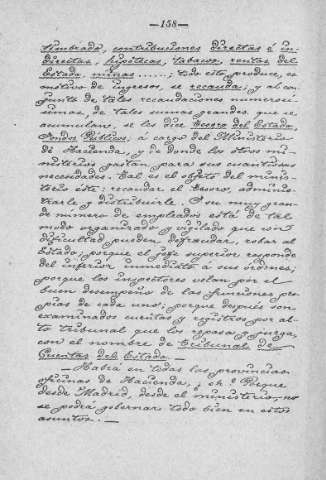 —158—
timbrado, contribuciones directas é in-
directas, hipotecas, tabacos, rentas del
Estado, minas......; todo esto produce, es
motivo de ingresos, se recauda; y al con-
junto de tales recaudaciones numerosí-
simas, de tales sumas grandes, que se
acumulan, se les dice Tesoro del Estado,
Fondos Públicos; á cargo del Ministerio
de Hacienda, y de donde los otros mi-
nisterios gastan, para sus cuantiosas
necesidades. Tal es el objeto del minis-
terio este: recaudar el tesoro, adminis-
trarle y distribuirle. Y su muy gran-
de número de empleados está de tal
modo organizado y vigilado que con
dificultad pueden defraudar, robar al
Estado; porque el jefe superior responde
del inferior inmediato a sus órdenes;
porque los inspectores velan por el
buen desempeño de las funciones pro-
pias de cada uno; porque después son
examinados cuentas y registros por al-
to tribunal que los repasa y juzga,
con el nombre de Tribunal de
Cuentas del Estado.—
—Habrá en todas las provincias
oficinas de Hacienda, ¿eh? Porque
desde Madrid, desde el ministerio, no
se podrá gobernar todo bien en estos
asuntos.—